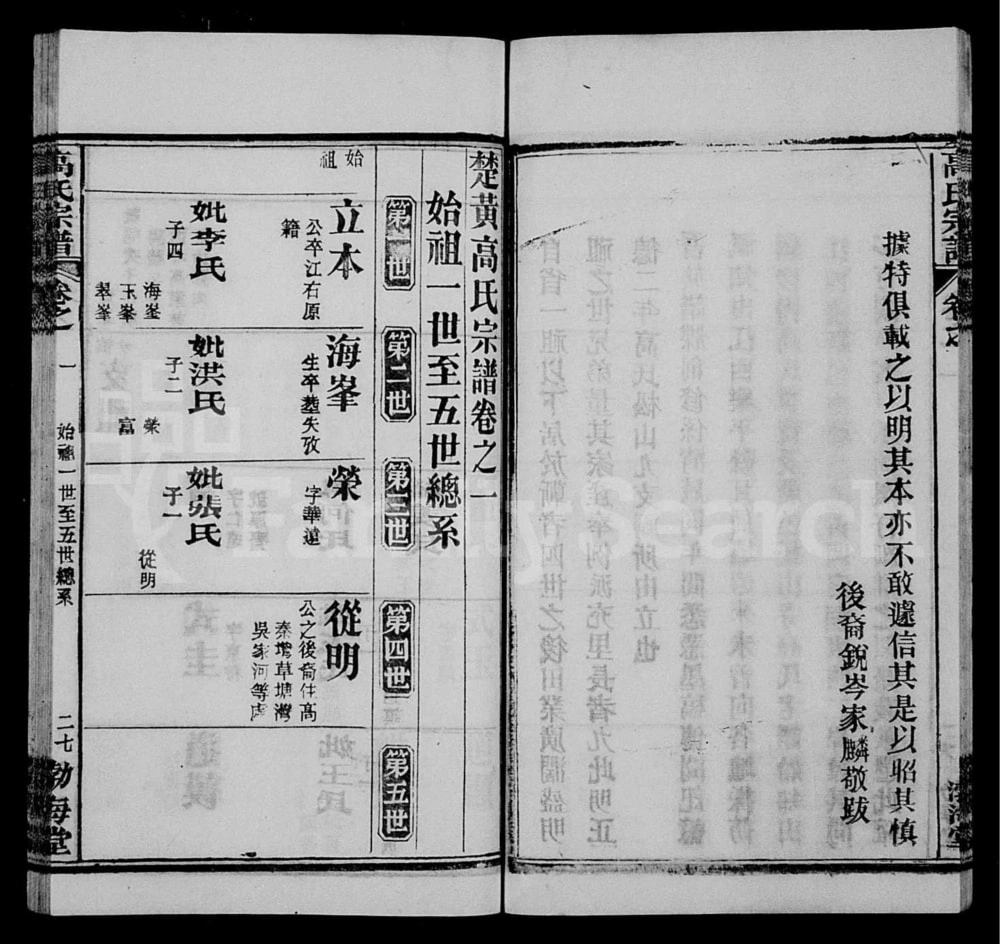 據特俱載之以明其本亦不敢遽信其是以昭其慎
後裔銳岑家麟敬跋
高氏宗譜
卷之
楚黃高氏宗譜卷之一
始祖一世至五世總系
第一世
第二世
第三世
第四世
第五世
始祖
立本
公卒江右原
籍
妣李氏
子四
海峯
玉峯
翠峯
海峯
生卒塟失攷
妣洪氏
子二
榮
富
榮
字華遠
妣張氏
子一
從明
從明
公之後裔住高
秦塆草塘灣
吳家河等處
高氏宗譜
卷之一
一
始祖一世至五世總系
二七
勃海堂
FamilySearch